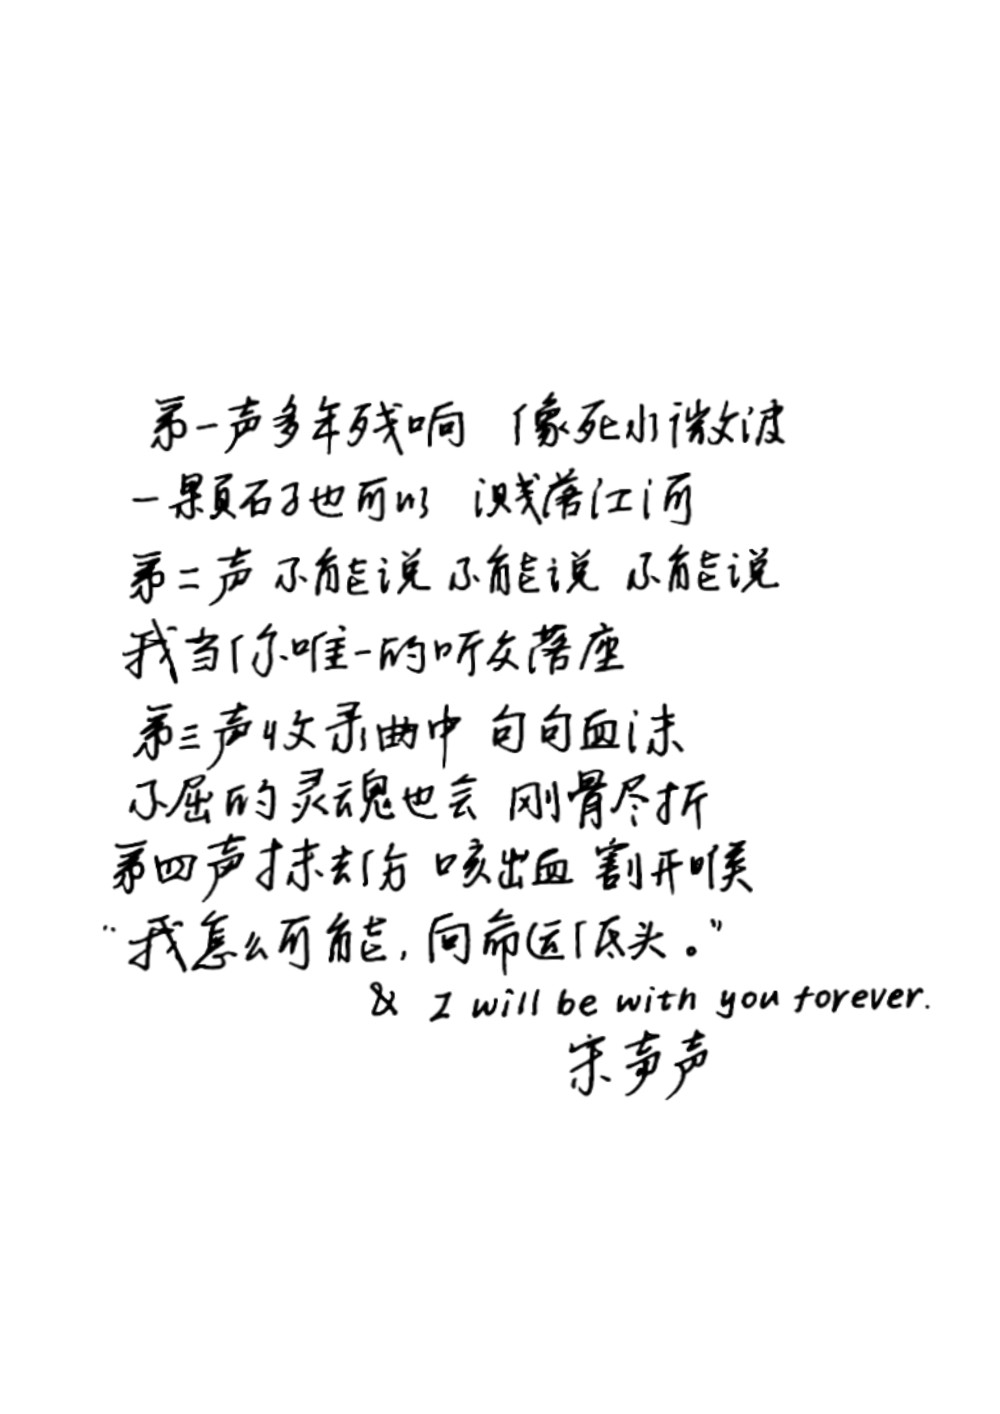 第一声多年残响 像死水微波
一颗石子也可以 溅落江河
第二声 不能说 不能说 不能说
我当你唯一的听众落座
第三声收录曲中 句句血沫
不屈的灵魂也会 刚骨尽折
第四声抹去伤 咳出血 割开喉
“我怎么可能，向命运低头。”
& I will be with you forever.
宋声声